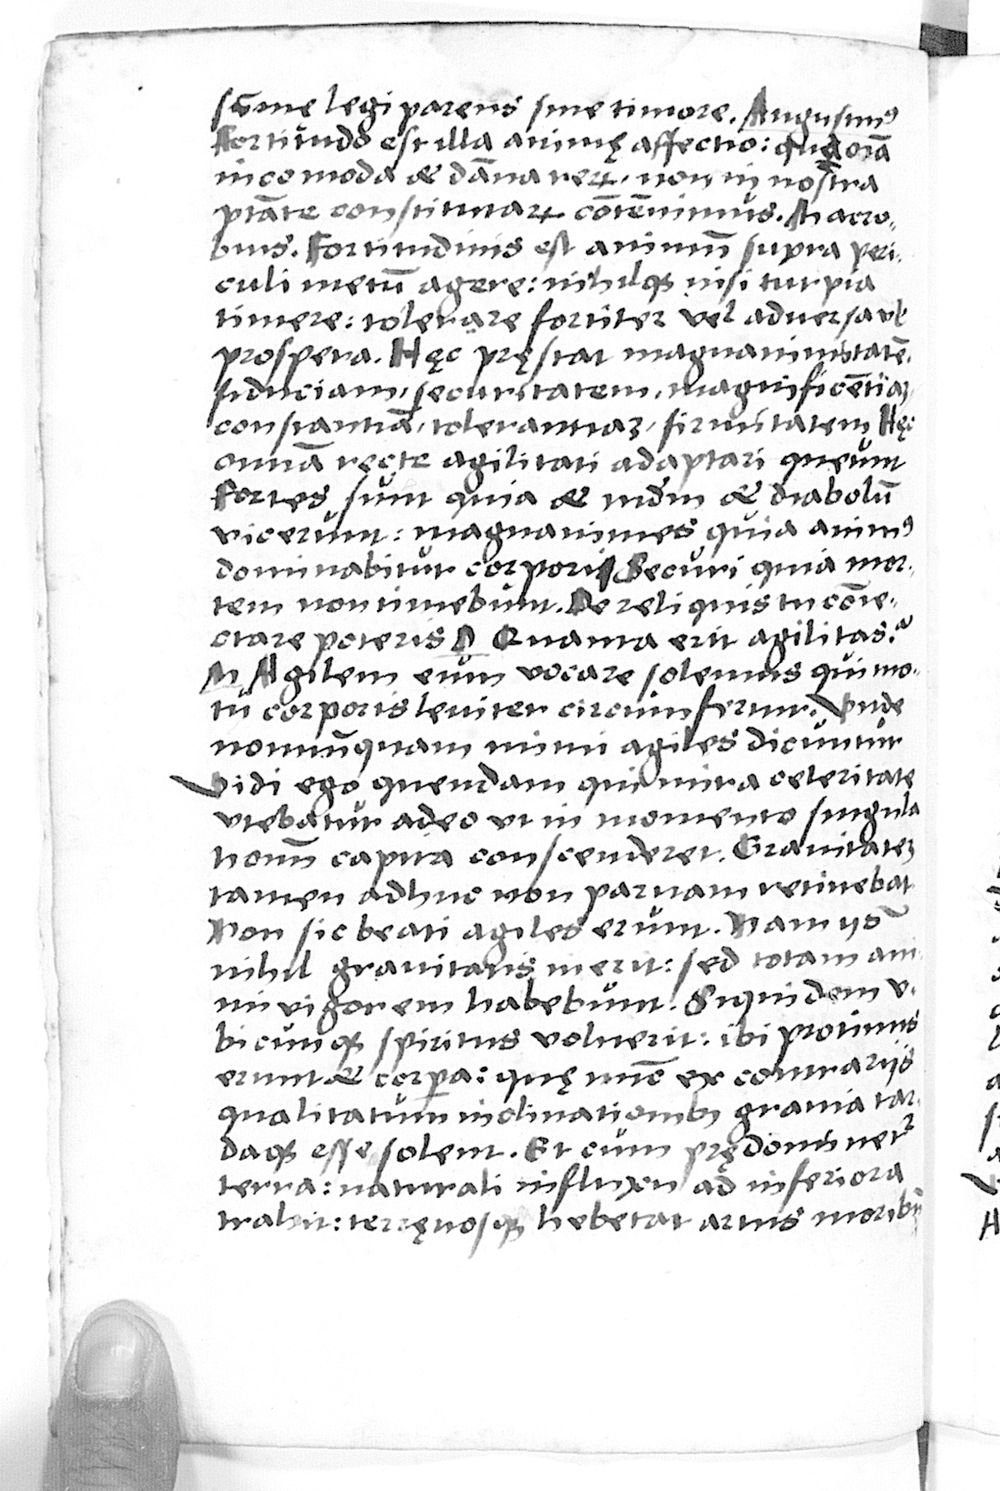 sūme legi parens sine timore. Augustinꝰ
Fortitudo est illa animę affectio: quę oīa
incomoda & dāna rerꝝ, non in nostra
ptāte constitutarꝝ cōtēnimus. Macro-
bius. Fortitudinis est animū supra peri-
culi metū agere: nihilqꝫ nisi turpia
timere: tolerare fortiter vel adversa vel
prospera. Hęc pręstat magnanimitatē,
fiduciam, securitatem, magnificētiaꝫ,
constantiā, tolerantiaꝫ, firmitatem Hęc
omniā recte agilitati adaptari queunt
Fortes sunt quia & mdm & diabolū
vicerunt: magnanimes quia animꝰ
dominabitur corpori Securi quia mor-
tem non timebunt. De reliquis tu cōie-
ctare poteris D Quanta erit agilitas?
M Agilem eum vocare solemus qui mo-
tu corporis leviter circumfertur. Vnde
nonnūquam mimi agiles dicuntur
Vidi ego quendam qui mira celeritate
vtebatur adeo vt in momento singula
honū capita conscenderet. Gravitateꝫ
tamen adhuc non parvam retinebat
Non sic beati agiles erunt. Nam ijs
nihil gravitatis inerit: sed totam ani
mi vigorem habebunt. Siquidem v-
bicunqꝫ spiritus voluerit: ibi protinus
erunt & corpa: quę nunc ex contrarijs
qualitatum inclinationibꝫ gravia tar-
daqꝫ esse solent. Et cum prędominetꝛ
terra: naturali influxu ad inferiora
trahit: terręnosqꝫ hebetat artus moribū